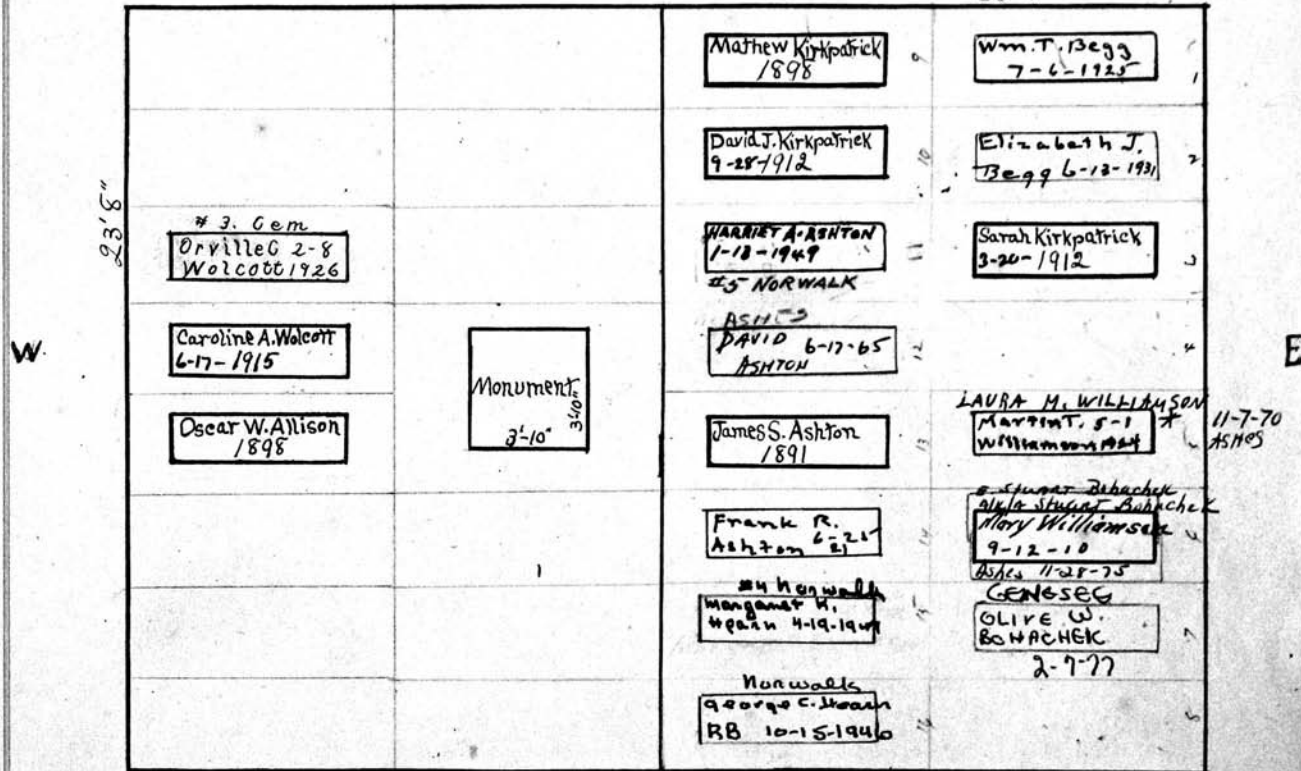 23'8"
W
E
# 3. Cem
Orville C 2-8
Wolcott 1926
Caroline A. Wolcott
6-17-1915
Oscar W. Allison
1898
Monument
3'-10"
3'-10"
Mathew Kirkpatrick
1898
9
David J. Kirkpatrick
9-28-1912
10
HARRIET A. ASHTON
1-18-1949
#5 NORWALK
11
ASHES
DAVID 6-17-65
ASHTON
12
James S. Ashton
1891
13
Frank R.
Ashton 6-25
21
14
#4 Norwalk
Margaret H.
Hearn
15
Norwalk
George C. Hearn
RB 10-15-1946
16
Wm. T. Begg
7-6-1925
1
Elizabeth J.
Begg 6-13-1931
2
Sarah Kirkpatrick
3-20-1912
3
4
LAURA M. WILLIAMSON
Martin T. 5-1
Williamson
* 11-7-70
ASHES
Stuart Bohachek
a/k/a Stuart Bohachek
Mary Williamson
9-12-10
Ashes 11-28-75
6
OLIVE W.
BOHACHEK
2-7-77
7